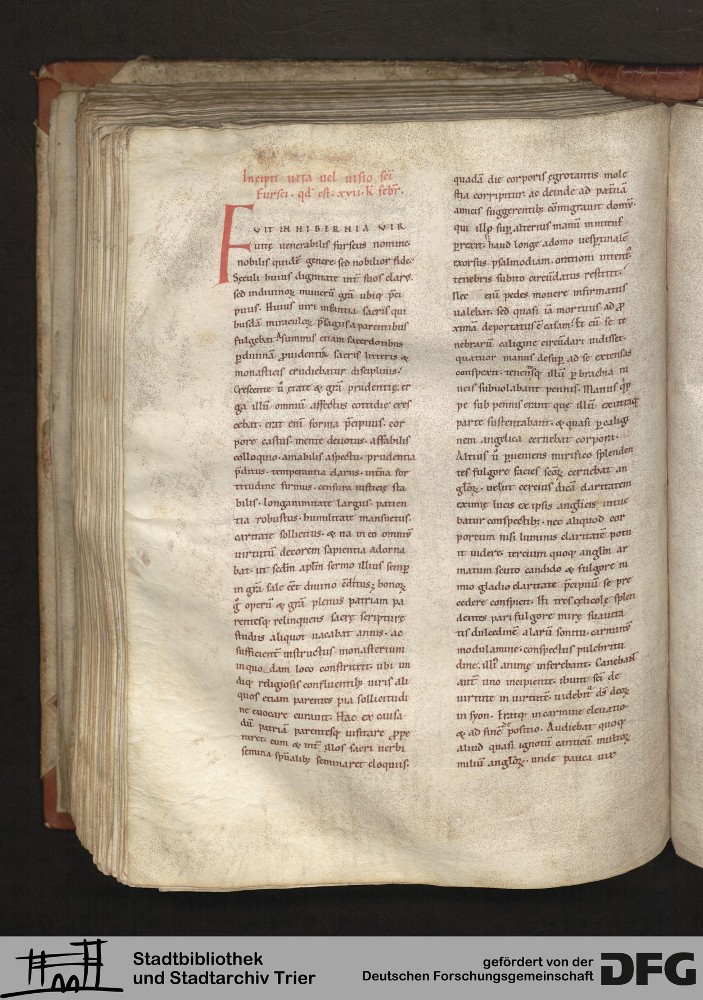 Incipit uita uel uisio sci
Fursei. qd est. xvii. k febr.
FVIT IN HIBERNIA VIR
uitę uenerabilis furseus nomine
nobilis quidē genere sed nobilior fide.
Sęculi huius dignitate int suos clarꝰ.
sed indiuinoꝝ munerū grā ubiq; pci
puus. Huius uiri infantia sacris qui
busdā miraculoꝝ psagiis aparentibus
fulgebat. Asummis etiam sacerdotibus
pdiuinā prudentiā sacris litteris &
monasticis erudiebatur disciplinis.
Crescente ū ętate & grā prudentię. er
ga illū omniū affectus cottidie cres
cebat. erat enī forma pcipuus. cor
pore castus. mente deuotus. affabilis
colloquio. amabilis aspectu. prudentia
pditus. temperantia clarus. interna for
titudine firmus. censura iusticię sta
bilis. longanimitate largus. patien
tia robustus. humilitate mansuetus.
caritate sollicitus. & ita in eo omniū
uirtutū decorem sapientia adorna
bat. ut sedm aplm sermo illius semp
in grā sale eēt diuino
operū & grā plenus patriam pa
rentesq; relinquens sacrę scripturę
studiis aliquot uacabat annis. ac
sufficient instructus monasterium
inquo dam loco construxit. ubi un
diq; religiosis confluentib; uiris ali
quos etiam parentes pia sollicitudi
ne euocare curauit. Hac ex causa
dū patriā parentesq; uisitare prope
raret. cum & int illos sacri uerbi
semina spualib; seminaret eloquiis.
quadā die corporis ęgrotantis mole
stia corripitur. ac deinde ad patriā
amicis suggerentib; cōmigrauit domū.
qui illo sup alterius manū innitens
prexit. haud longe adomo uesptinalē
exorsus psalmodiam. orationi intentꝰ
tenebris subito circūdatus restitit.
Nec enī pedes mouere infirmatus
ualebat. sed quasi iā mortuus ad p
xima deportatus ē casam. Et cū se te
nebrarū caligine circūdari uidisset.
quatuor manus desup ad se extensas
conspexit. tenensq; illū p brachia ni
ueis subuolabant pennis. Manus qpp
pe sub pennis erant quę illū exutraq;
parte sustentabant. & quasi p calig
nem angelica cernebat corpora.
Altius ū pueniens mirifico splenden
tes fulgore facies scōꝝ cernebat an
gloꝝ. uelut cereus dicā claritatem
eximię lucis ex ipsis anglicis intue
batur conspectib;. nec aliquod cor
poreum nisi luminis claritatē potu
it uidere. tercium quoq; anglm ar
matum scuto candido & fulgore ni
mio gladio claritate pcipuū se pre
cedere conspexit. Hi tres cęlicolę splen
dentes pari fulgore mirę suauita
tis dulcedinē. alarū sonitu. carminū
modulamine. conspectus pulchritu
dine. illiꝰ animę inserebant. Canebant
aut uno incipiente. ibunt sci de
uirtute in uirtutē. uidebit ds deoꝝ
in syon. Eratq; in carmine eleuatio.
& ad finē depositio. Audiebat quoq;
aliud quasi ignotū canticū multoꝝ
miliū angloꝝ. unde pauca uix
Stadtbibliothek
und Stadtarchiv Trier
gefördert von der
Deutschen Forschungsgemeinschaft
DFG